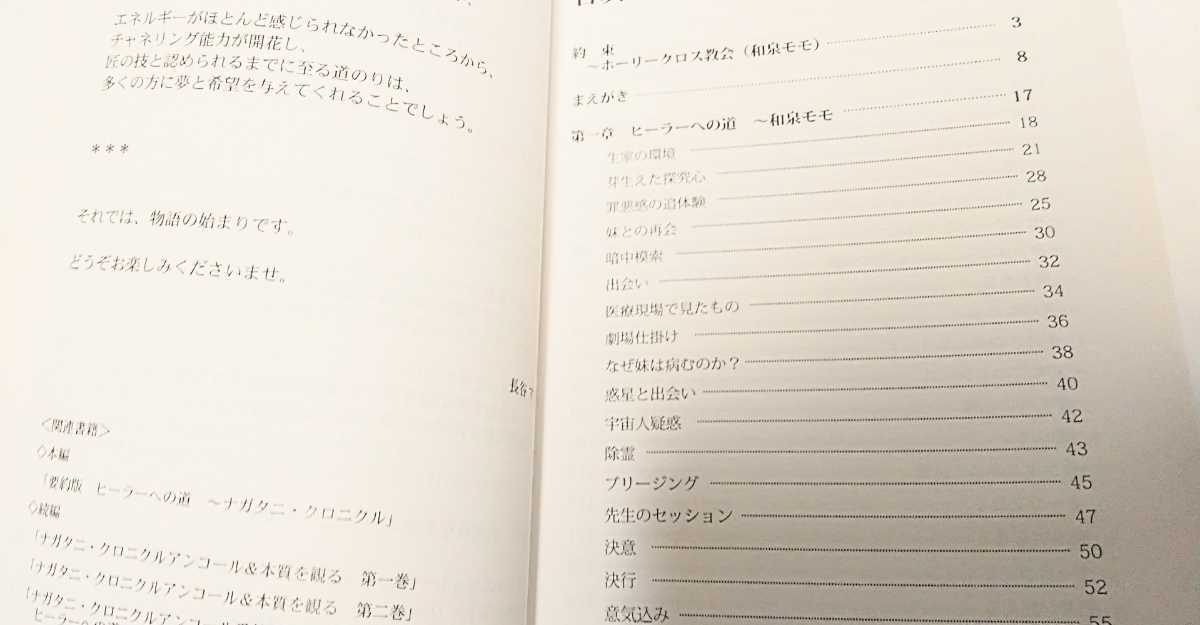 エネルギーがほとんど感じられなかったところから、
チャネリング能力が開花し、
匠の技と認められるまでに至る道のりは、
多くの方に夢と希望を与えてくれることでしょう。
***
それでは、物語の始まりです。
どうぞお楽しみくださいませ。
長谷
<関連書籍>
◇本編
「要約版 ヒーラーへの道 ~ナガタニ・クロニクル」
◇続編
「ナガタニ・クロニクルアンコール&本質を観る 第一巻」
「ナガタニ・クロニクルアンコール&本質を観る 第二巻」
「ナガタニ・クロニクルアンコール
ヒーラーへの
約 束
~ホーリークロス教会(和泉モモ) 3
まえがき 8
第一章 ヒーラーへの道 ~和泉モモ 17
生家の環境 18
芽生えた探究心 21
罪悪感の追体験 28
妹との再会 25
暗中模索 30
出会い 32
医療現場で見たもの 34
劇場仕掛け 36
なぜ妹は病むのか? 38
惑星と出会い 40
宇宙人疑惑 42
除霊 43
ブリージング 45
先生のセッション 47
決意 50
決行 52
意気込み 55